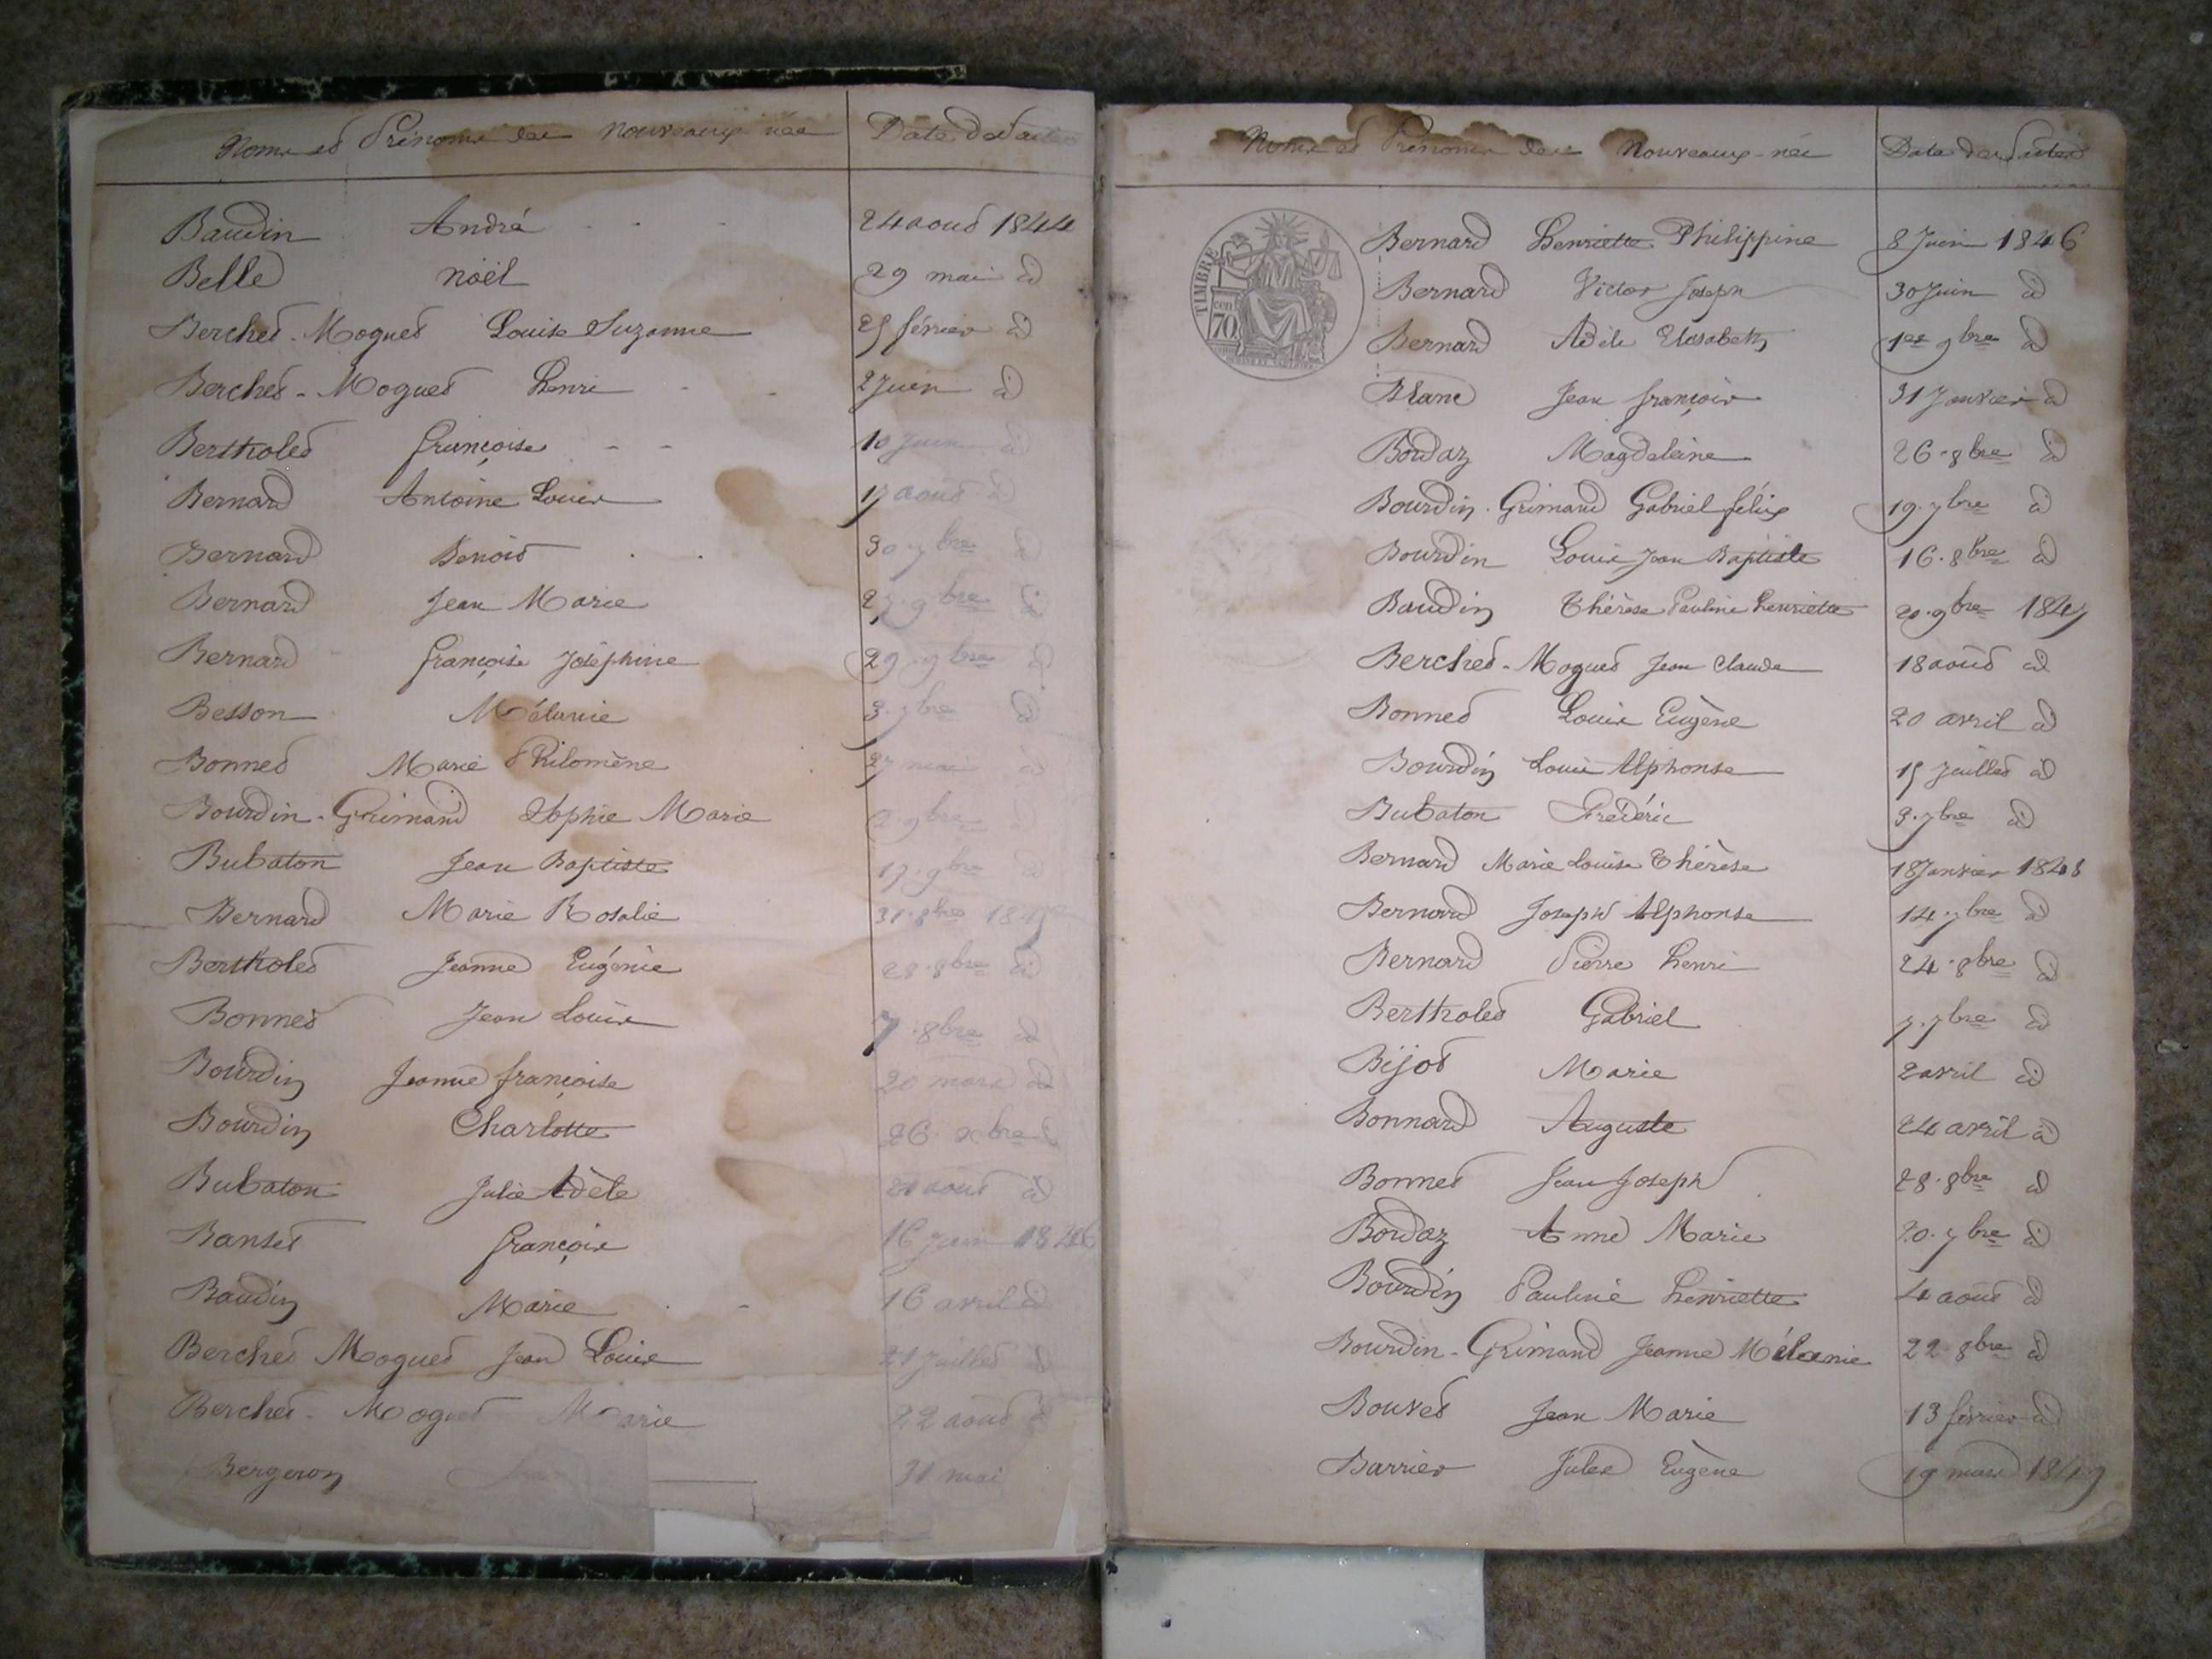 Noms et Prénoms des nouveaux nés Date des actes
Baudin André 24 aout 1844
Belle noël 29 mai id
Berchet-Moguet Louise Suzanne 25 février id
Berchet-Moguet henri 2 Juin id
Bertholet françoise 10 Juin id
Bernard Antoine Louis 17 aout id
Bernard Benoit 30 7bre id
Bernard Jean Marie 27 9bre id
Bernard françoise Joséphine 29 9bre id
Besson Mélanie 3 7bre id
Bonnet Marie Philomène 27 mai id
Bourdin-Grimand Sophie Marie 9bre id
Bubaton Jean Baptiste 17 9bre id
Bernard Marie Rosalie 31 8bre 1845
Bertholet Jeanne Eugénie 28 8bre id
Bonnet Jean Louis 7 8bre id
Bourdin Jeanne françoise 20 mars id
Bourdin Charlotte 26 xbre id
Bubaton Julie Adèle 21 aout id
Banset françois 16 Juin 1846
Baudin Marie 16 avril id
Berchet Moguet Jean Louis 21 Juillet id
Berchet-Moguet Marie 22 aout id
Bergeron 31 mai
Noms et Prénoms des Nouveaux-nés Date des actes
TIMBRE
70
Bernard henriette Philippine 8 Juin 1846
Bernard Victor Joseph 30 Juin id
Bernard Adèle Elisabeth 1er 9bre id
Blanc Jean françois 31 Janvier id
Bordaz Magdeleine 26 8bre id
Bourdin-Grimand Gabriel félix 19 7bre id
Bourdin Louis Jean Baptiste 16 8bre id
Baudin Thérèse Pauline henriette 20 9bre 1847
Berchet-Moguet Jean claude 18 aout id
Bonnet Louis Eugène 20 avril id
Bourdin Louis Alphonse 15 Juillet id
Bubaton Frédéric 3 7bre id
Bernard Marie Louise Thérèse 18 Janvier 1848
Bernard Joseph Alphonse 14 7bre id
Bernard Pierre henri 24 8bre id
Bertholet Gabriel 7 7bre id
Bijot Marie 2 avril id
Bonnard Auguste 24 avril id
Bonnet Jean Joseph 28 8bre id
Bordaz Anne Marie 20 7bre id
Bourdin Pauline henriette 4 aout id
Bourdin-Grimand Jeanne Mélanie 22 8bre id
Bouvet Jean Marie 13 février id
Barrier Jules Eugène 19 mars 1849